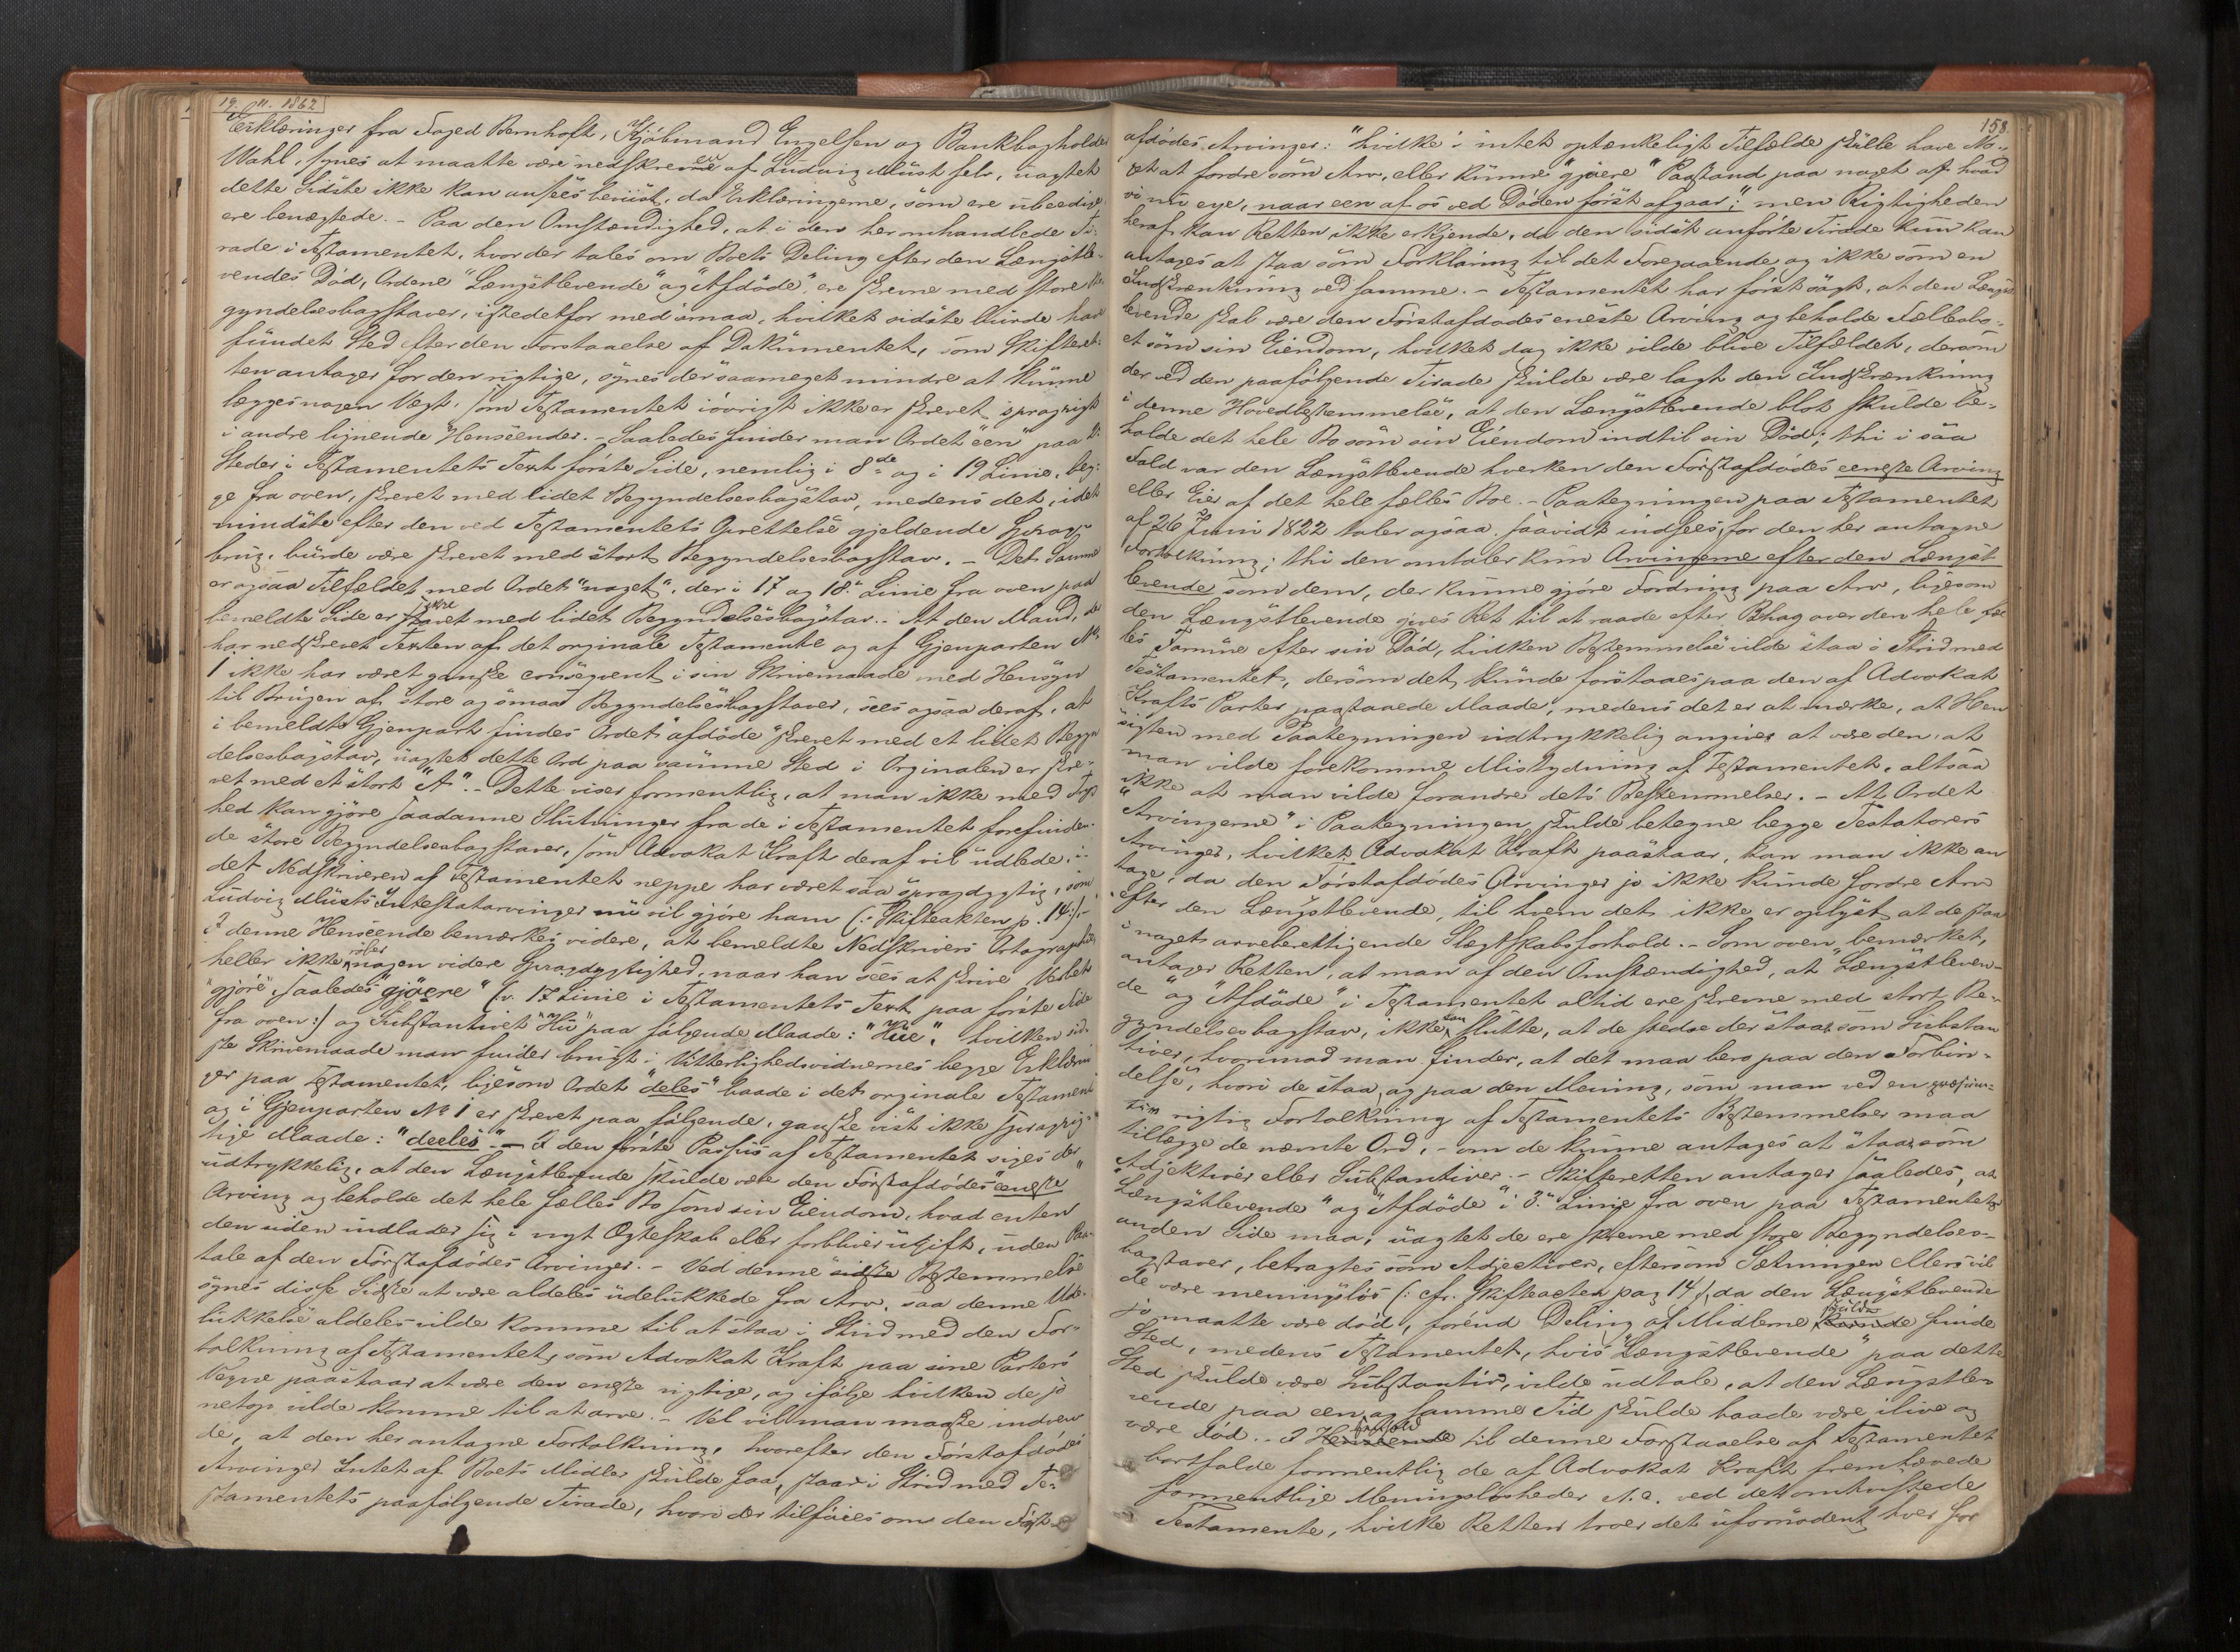 19. 11. 1862
Erklæringer fra Foged Bernhoft, Kjøbmand Engelsen og Bankbogholder
Wahl, synes at maatte være nedskrevne af Ludvig Must selv, uagtet
dette Sidste ikke kan ansees beviist, da Erklæringerne, som ere ubeedige
ere benægtede. - Paa den Omstændighed, at i den her omhandlede Ti-
rade i Testamentet, hvor der tales om Boets Deling efter den Længstle-
vendes Død, Ordene "Længstlevende" og "Afdøde", ere skrevne med store Be-
gyndelsesbogstaver, istedetfor med smaa, hvilket sidste burde have
fundet Sted efter den Forstaaelse af Dokumentet, som Skifteret-
ten antager for den rigtige, synes der saameget mindre at kunne
lægges nogen Vægt, som Testamentet iøvrigt ikke er skrevet sprogrigt
i andre lignende Henseender. - Saaledes finder man Ordet "een" paa to
Steder i Testamentets Text første Side, nemlig i 8de og i 19 Linie, beg-
ge fra oven, skrevet med lidet Begyndelsesbogstav, medens det, idet
mindste efter den ved Testamentets Oprettelse gjeldende Sprog-
brug, burde være skrevet med stort Begyndelsesbogstav. - Det Samme
er ogsaa Tilfældet med Ordet "noget", der i 17 og 18de Linie fra oven paa
bemeldte Side er skrevet med lidet Begyndelsesbogstav. - At den Mand, der
har nedskrevet Texten af det orginale Testamente og af Gjenparten No
1 ikke har været ganske conseqvent i sin Skrivemaade med Hensyn
til Brugen af store og smaa Begyndelsesbogstaver, sees ogsaa deraf, at
i bemeldte Gjenpart findes Ordet "afdøde" skrevet med et lidet Begyn
delsesbogstav, uagtet dette Ord paa samme Sted i Orginalen er skre-
vet med et stort "A". - Dette viser formentlig, at man ikke med Tryg
hed kan gjøre saadanne Slutninger fra de i Testamentet forefinden-
de store Begyndelsesbogstaver, som Advokat Kraft deraf vil udlede, i-
det Nedskriveren af Testamentet neppe har været saa sprogdygtig, som
Ludvig Musts Intestatarvinger nu vil gjøre ham (: Skifteakten p. 14 :). -
I denne Henseende bemærkes videre, at bemeldte Nedskrivers Ortographie
heller ikke røber nogen videre Sprogdygtighed, naar han sees at skrive Verbet
"gjøre" saaledes "gjøere" (: v. 17 Linie i Testamentets Text paa første Side
fra oven :) og Substantivet "Hu" paa følgende Maade: "Hue", hvilken sid-
ste Skrivemaade man finder brugt i Vitterlighedsvidnernes begge Erklærin
ger paa Testamentet, ligesom Ordet "deles" baade i det orginale Testament
og i Gjenparten No 1 er skrevet paa følgende, ganske vist ikke sprogrig-
tige Maade: "deeles". - I den første Passus af Testamentet siges der
udtrykkelig, at den Længstlevende skulde være den Førstafdødes "eeneste"
Arving og beholde det hele fælles Bo som sin Eiendom, hvad enten
den siden indlader sig i nyt Ægteskab eller forbliver ugift, uden Paa-
tale af den Førstafdødes Arvinger. - Ved denne sidste Bestemmelse
synes disse Sidste at være aldeles udelukkede fra Arv, saa denne Ude-
lukkelse aldeles vilde komme til at staa i Strid med den For-
tolkning af Testamentet, som Advokat Kraft paa sine Parters
Vegne paastaar at være den eneste rigtige, og ifølge hvilken de jo
netop vilde komme til at arve. - Vel vil man maaske indven
de, at den her antagne Fortolkning, hvorefter den Førstafdødes
Arvinger Intet af Boets Midler skulde faa, staar i Strid med Te-
stamentets paafølgende Tirade, hvori der tilføies om den Først-
158.
afdødes Arvinger: "hvilke i intet optænkeligt Tilfælde skulle have No-
get at fordre som Arv, eller kunne "gjøere" Paastand paa noget af hvad
vi nu eye, naar een af os ved Døden først afgaar"; men Rigtigheden
heraf kan Retten ikke erkjende, da den sidst anførte Tirade kun kan
antages at staa som Forklaring til det Foregaaende og ikke som en
Indskrænkning ved samme. - Testamentet har først sagt, at den Længst
levende skal være den Førstafdødes eneste Arving og beholde Fællesbo-
et som sin Eiendom, hvilket dog ikke vilde blive Tilfældet, dersom
der ved den paafølgende Tirade skulde være lagt den Indskrænkning
i denne Hovedbestemmelse, at den Længstlevende blot skulde be-
holde det hele Bo som sin Eiendom indtil sin Død; thi i saa
Fald var den Længstlevende hverken den Førstafdødes eeneste Arving
eller Eier af det hele fælles Boe. - Paategningen paa Testamentet
af 26 Juni 1822 taler ogsaa, saavidt indsees, for den her antagne
Fortolkning; thi den omtaler kun Arvingerne efter den Længst
levende som dem, der kunne gjøre Fordring paa Arv, ligesom
den Længstlevende gives Ret til at raade efter Behag over den hele fæl
les Formue efter sin Død, hvilken Bestemmelse vilde staa i Strid med
Testamentet, dersom det kunde forstaaes paa den af Advokat
Krafts Parter paastaaede Maade, medens det er at mærke, at Hen
sigten med Paategningen udtrykkelig angives at være den, at
man vilde forekomme Mistydning af Testamentet, altsaa
ikke at man vilde forandre dets Bestemmelser. - At Ordet
"Arvingerne" i Paategningen skulde betegne begge Testatorers
Arvinger, hvilket Advokat Kraft paastaar, kan man ikke an
tage, da den Førstafdødes Arvinger jo ikke kunde fordre Arv
efter den Længstlevende, til hvem det ikke er oplyst at de staa
i noget arveberettigende Slægtskabsforhold. - Som oven bemærket,
antager Retten, at man af den Omstændighed, at "Længstleven-
de" og "Afdøde" i Testamentet altid ere skrevne med stort Be-
gyndelsesbogstav, ikke kan slutte, at de stedse der staar som Substan
tiver, hvorimod man finder, at det maa bero paa den Forbin-
delse, hvori de staa, og paa den Mening, som man ved en
rigtig Fortolkning af Testamentets Bestemmelser maa
tillægge de nævnte Ord, - om de kunne antages at staa som
Adjektiver eller Substantiver. - Skifteretten antager saaledes, at
"Længstlevende" og "Afdøde" i 3de Linie fra oven paa Testamentets
anden Side maa, uagtet de ere skrevne med store Begyndelses-
bogstaver, betragtes som Adjectiver, eftersom Sætningen ellers vil
de være meningsløs (: cfr. Skifteacten pag 14 :), da den Længstlevende
jo maatte være død, førend Deling af Midlerne kunde skulde finde
Sted, medens Testamentet, hvis "Længstlevende" paa dette
Sted skulde være Substantiv, vilde udtale, at den Længstle-
vende paa een og samme Tid skulde baade være ilive og
være død. - I Henseende Henhold til denne Forstaaelse af Testamentet
bortfalde formentlig de af Advokat Kraft fremhævede
formentlige Meningsløsheder A. a. ved det omtvistede
Testamente, hvilke Retten troer det ufornødent hver for